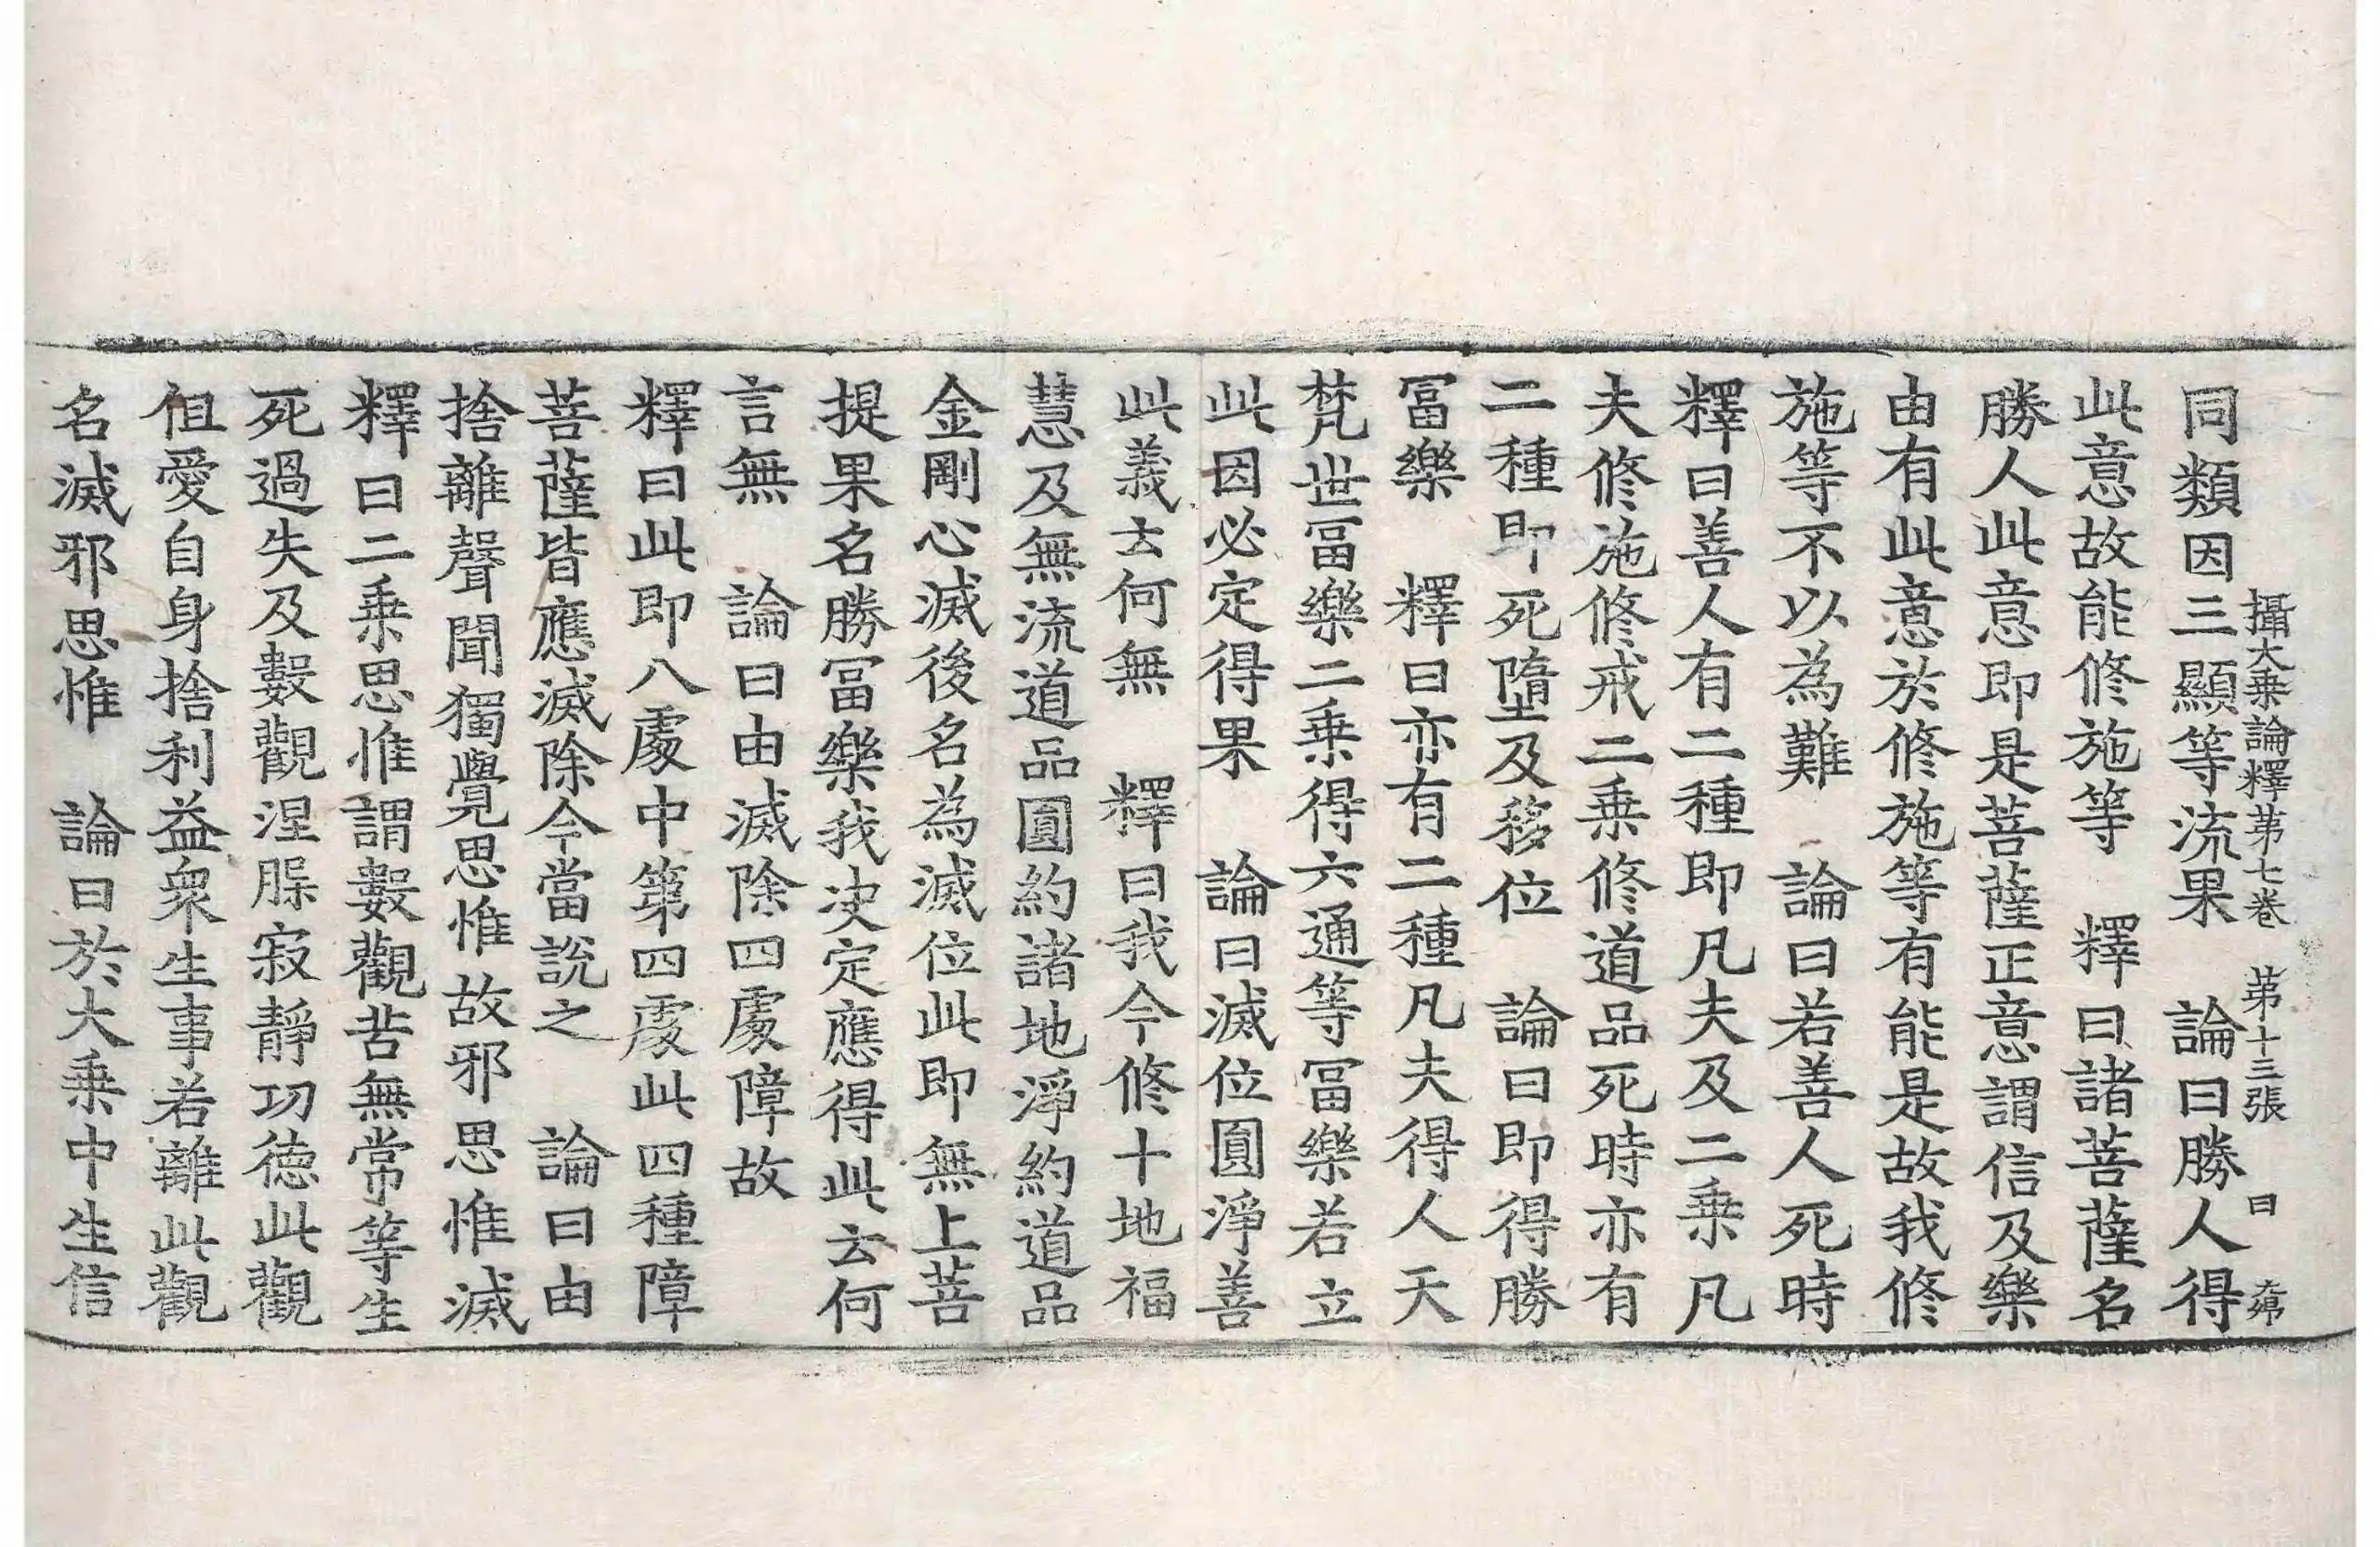 攝大乘論釋第七卷　第十三張　曰
同類因三顯等流果　論曰勝人得
此意故能修施等　釋曰諸菩薩名
勝人此意即是菩薩正意謂信及樂
由有此意於修施等有能是故我修
施等不以為難　論曰若善人死時
釋曰善人有二種即凡夫及二乘凡
夫修施修戒二乘修道品死時亦有
二種即死墮及移位　論曰即得勝
冨樂　釋曰亦有二種凡夫得人天
梵世冨樂二乘得六通等冨樂若立
此因必定得果　論曰滅位圓淨善
此義云何無　釋曰我今修十地福
慧及無流道品圓約諸地淨約道品
金剛心滅後名為滅位此即無上菩
提果名勝冨樂我决定應得此云何
言無　論曰由滅除四處障故
釋曰此即八處中第四處此四種障
菩薩皆應滅除今當說之　論曰由
捨離聲聞獨覺思惟故邪思惟滅
釋曰二乘思惟謂數觀苦無常等生
死過失及數觀涅槃寂靜功德此觀
但愛自身捨利益衆生事若離此觀
名滅邪思惟　論曰於大乘中生信